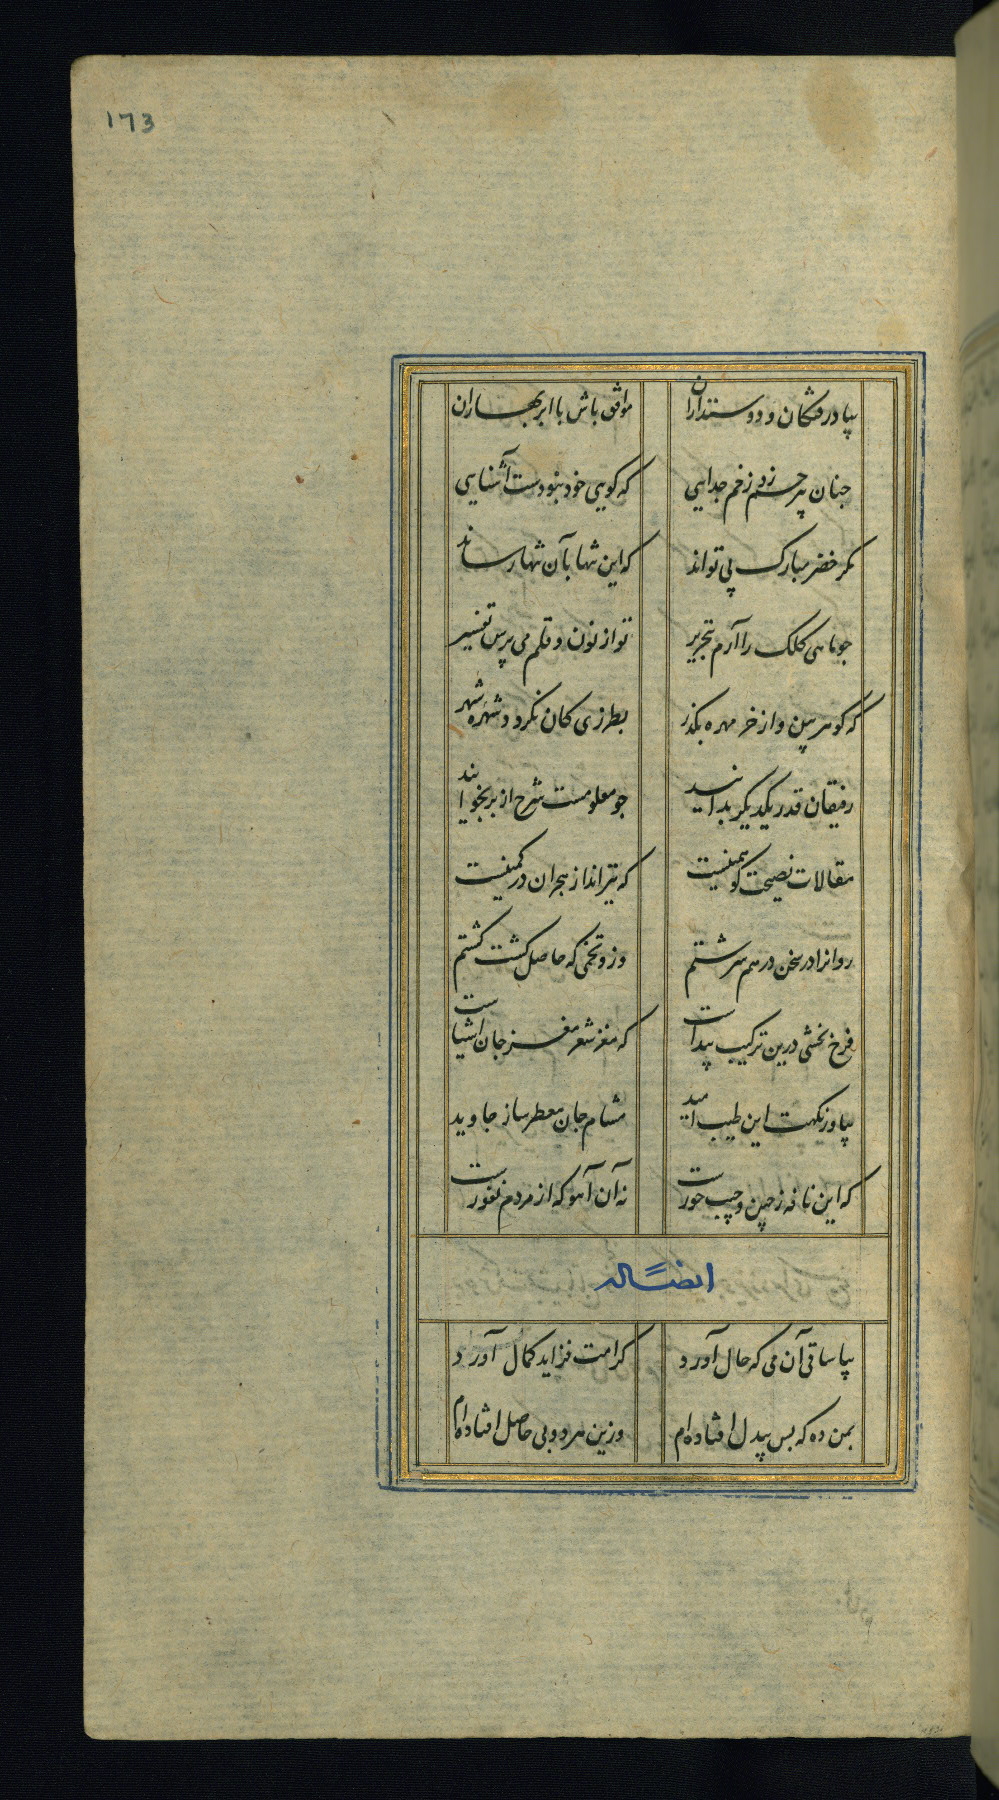 173
بیاد رفتگان و دوستداران موافق باش با ابر بهاران
چنان بیرحم زد زخم جدایی که کویی خود نبودست آشنایی
مکر خضر مبارک پی تواند که این تنها بآن تنها رساند
جو ماهی کلک را آرم تحریر تو از نون و قلم می پرس تفسیر
که کوهر بین و از خر مهره بکذر بطرزی کان نکردد شهره شهر
رفیقان قدر یکدیکر بدانید جو معلومست شرح از بر بخوانید
مقالات نصیحت کو همینست که تیرانداز هجران در کمینست
روانرا در سخن درهم سرشتم وزو تخمی که حاصل کشت کشتم
فرح بخشی درین ترکیب پیداست که مغز شعر مغز جان اشیاست
بیا وز نکهت این طیب امید مشام جان معطر ساز جاوید
که این نافه ز چین و جیب حورست نه آن آهو که از مردم نفورست
ایضاً له
بیا ساقی آن می که حال آورد کرامت فزاید کمال آورد
بمن ده که بس بیدل افتاده ام وزین هر دو بی حاصل افتاده ام